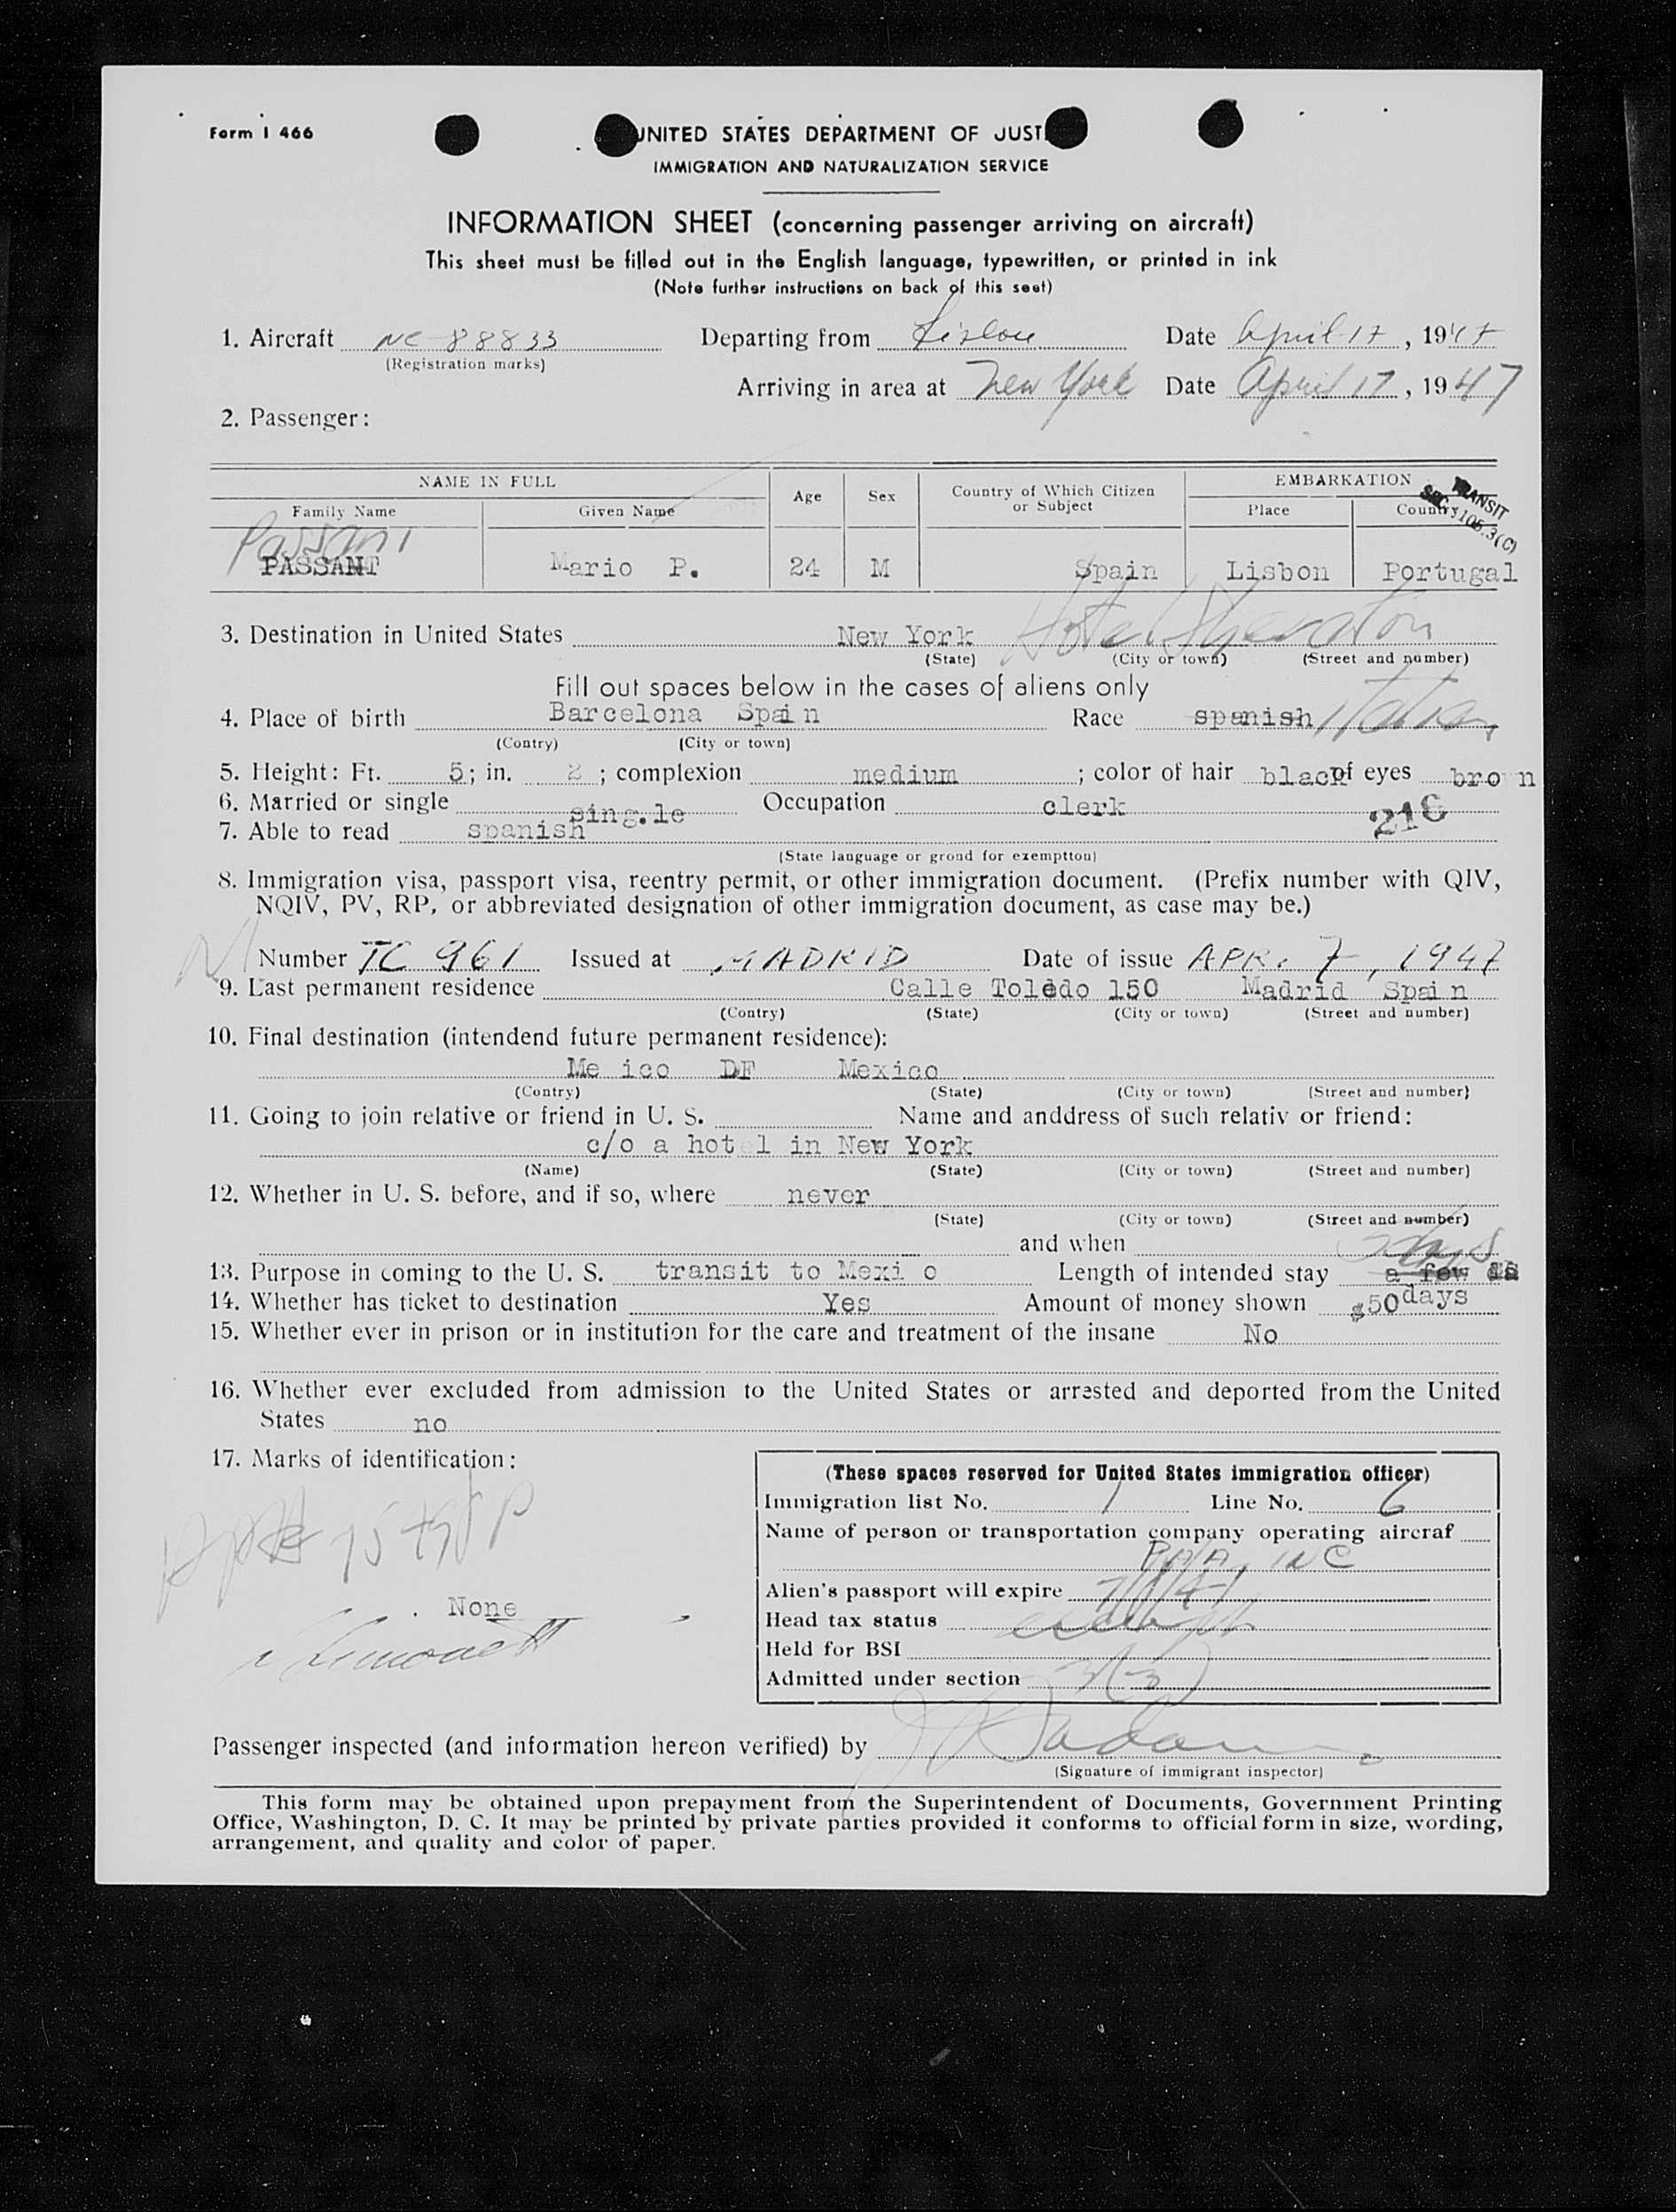 Form I 466
UNITED STATES DEPARTMENT OF JUST
IMMIGRATION AND NATURALIZATION SERVICE
INFORMATION SHEET (concerning passenger arriving on aircraft)
This sheet must be filled out in the English language, typewritten, or printed in ink
(Note further instructions on back of this seet)
1. Aircraft NC-88833 Departing from Lisbon Date April 17, 1947
(Registration marks)
Arriving in area at New York Date April 17, 1947
2. Passenger:
NAME IN FULL Age Sex Country of Which Citizen or Subject EMBARKATION
Family Name Given Name Place Country
TRANSIT
SEC. 3106.3(C)
Passani
PASSANT Mario P. 24 M Spain Lisbon Portugal
3. Destination in United States New York Hotel Sheraton
(State) (City or town) (Street and number)
Fill out spaces below in the cases of aliens only
4. Place of birth Barcelona Spain Race spanish Italian
(Contry) (City or town)
5. Height: Ft. 5; in. 2; complexion medium; color of hair black of eyes bro n
6. Married or single sing.le Occupation clerk
218
7. Able to read spanish
(State language or grond for exemptton)
8. Immigration visa, passport visa, reentry permit, or other immigration document. (Prefix number with QIV,
NQIV, PV, RP, or abbreviated designation of other immigration document, as case may be.)
Number TC 961 Issued at MADRID Date of issue APR. 7, 1947
9. Last permanent residence Calle Toledo 150 Madrid Spain
(Contry) (State) (City or town) (Street and number)
10. Final destination (intendend future permanent residence):
Me ico DF Mexico
(Contry) (State) (City or town) (Street and number)
11. Going to join relative or friend in U. S. Name and anddress of such relativ or friend:
c/o a hotel in New York
(Name) (State) (City or town) (Street and number)
12. Whether in U. S. before, and if so, where never
(State) (City or town) (Street and number)
and when
13. Purpose in coming to the U. S. transit to Mexi o Length of intended stay a few da
14. Whether has ticket to destination Yes Amount of money shown $50 days
15. Whether ever in prison or in institution for the care and treatment of the insane No
16. Whether ever excluded from admission to the United States or arrested and deported from the United
States no
17. Marks of identification:
None
(These spaces reserved for United States immigration officer)
Immigration list No. 1 Line No. 6
Name of person or transportation company operating aircraf
PAA, INC
Alien's passport will expire
Head tax status
Held for BSI
Admitted under section 3(3)
Passenger inspected (and information hereon verified) by
(Signature of immigrant inspector)
This form may be obtained upon prepayment from the Superintendent of Documents, Government Printing
Office, Washington, D. C. It may be printed by private parties provided it conforms to official form in size, wording,
arrangement, and quality and color of paper.